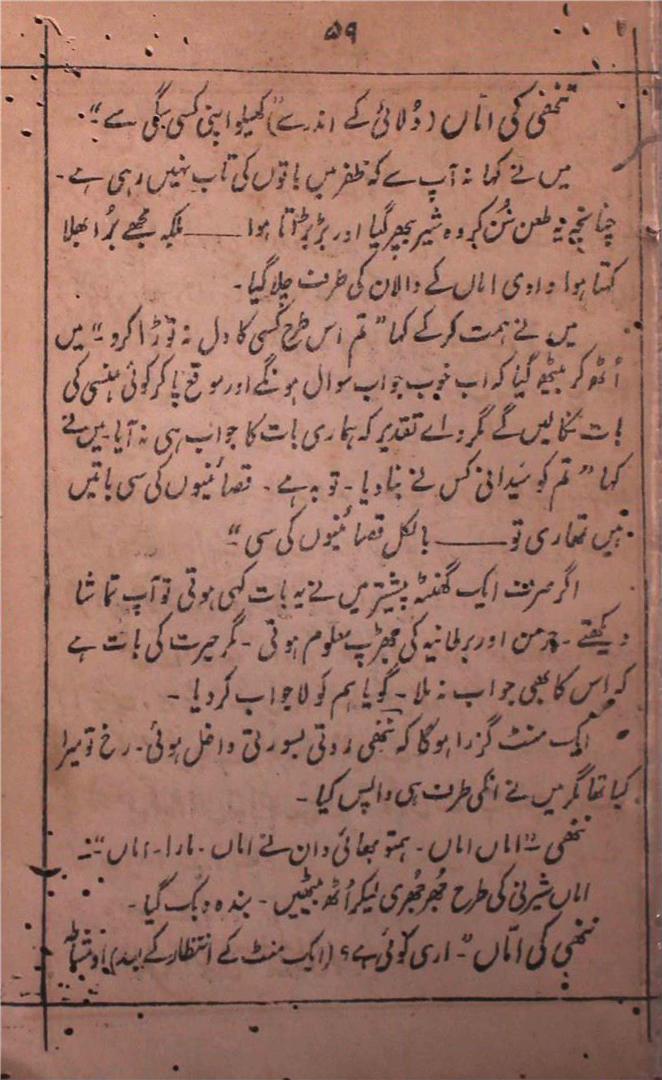 ۵۹
ننھی کی امّاں (دُلائی کے اندر سے) کھیلو اپنی کسی سگی سے"۔
میں نے کہا نہ آپ سے کہ ظفر میں باتوں کی تاب نہیں رہی ہے۔
چنانچہ یہ طعن سُن کر وہ شیر بپھر گیا اور بڑبڑاتا ہوا ـــــ بلکہ مجھے بُرا بھلا
کہتا ہوا دادی اماں کے دالان کی طرف چلا گیا۔
میں نے ہمت کر کے کہا "تم اس طرح کسی کا دل نہ توڑا کرو"۔ میں
اُٹھ کر بیٹھ گیا کہ اب خوب جواب سوال ہونگے اور موقع پا کر کوئی ہنسی کی
بات نکالیں گے مگر واے تقدیر کہ ہماری بات کا جواب ہی نہ آیا۔ میں نے
کہا "تم کو سیدانی کس نے بنا دیا۔ توبہ ہے۔ قصائنیوں کی سی باتیں
ہیں تمھاری تو ـــــ بالکل قصائنیوں کی سی"
اگر صرف ایک گھنٹہ پیشتر میں نے یہ بات کہی ہوتی تو آپ تماشا
دیکھتے۔ جرمن اور برطانیہ کی جھڑپ معلوم ہوتی۔ مگر حیرت کی بات ہے
کہ اس کا بھی جواب نہ ملا۔ گویا ہم کو لاجواب کر دیا۔
ایک منٹ گزرا ہوگا کہ ننھی روتی بسورتی داخل ہوئی۔ رخ تو میرا
کیا تھا مگر میں نے انکی طرف ہی واپس کیا۔
ننھی۔ "اماں اماں۔ ہمتو بھائی دان نے اماں۔ مارا۔ اماں"۔
اماں شیرنی کی طرح جھرجھری لیکر اُٹھ بیٹھیں۔ بندہ دبک گیا۔
ننھی کی امّاں"۔ اری کوئی ہے؟ (ایک منٹ کے انتظار کے بعد)